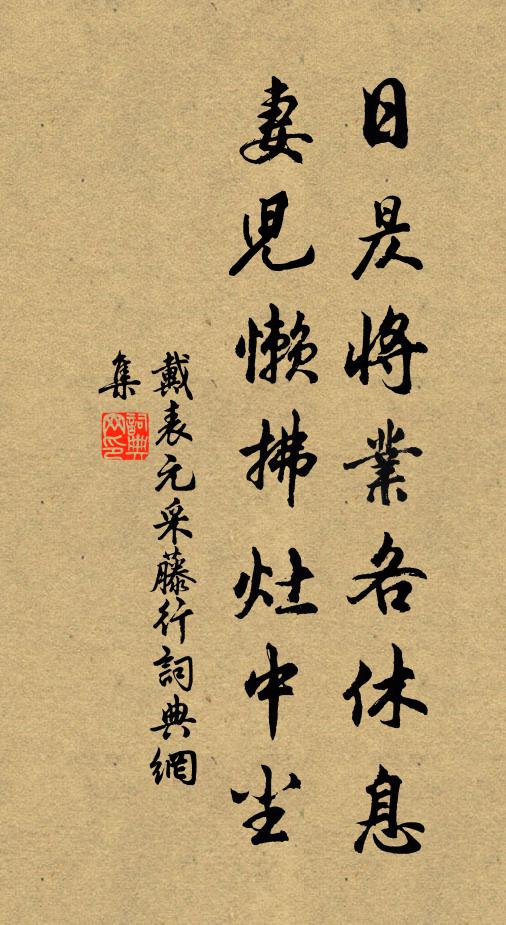 日昃將業各休息
妻兒懶拂灶中尘
戴表元采藤行詞典網
集
詞典
网印